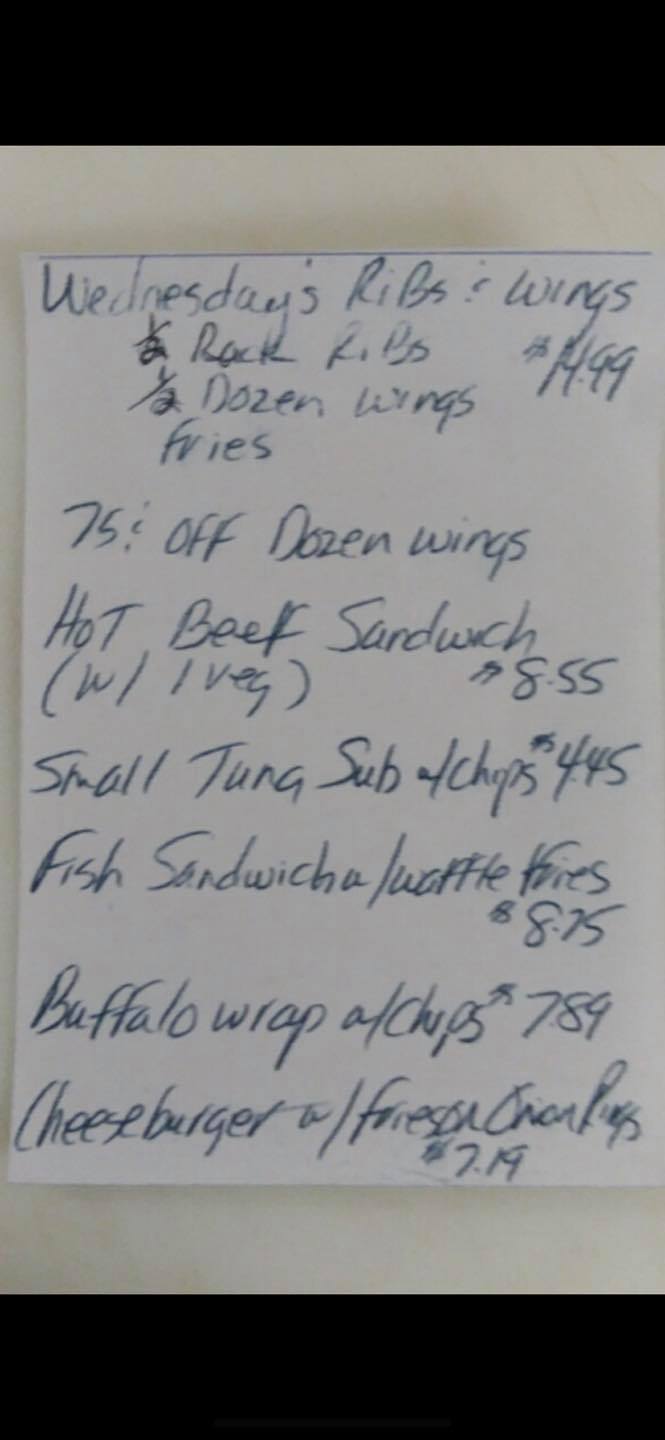 Wednesday's RiBs & wings
1/2 Rack RiBs $14.99
1/2 Dozen wings
fries
75¢ OFF Dozen wings
HOT Beef Sandwich
(w/ 1 veg) $8.55
Small Tuna Sub w/chips $4.45
Fish Sandwich w/waffle fries
$8.75
Buffalo wrap w/chips $7.89
Cheeseburger w/ fries or Onion Rings
$7.19